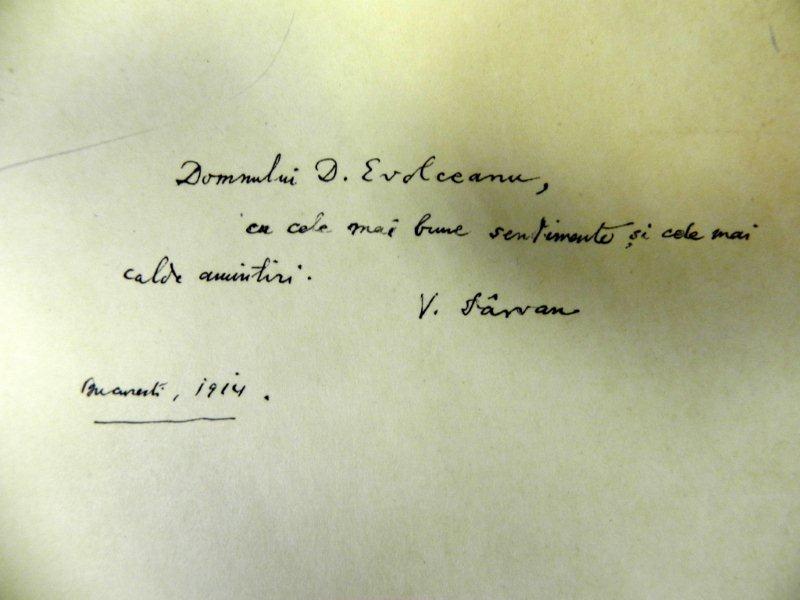 Domnului D. Evolceanu,
cu cele mai bune sentimente și cele mai
calde amintiri.
V. Pârvan
București, 1914.